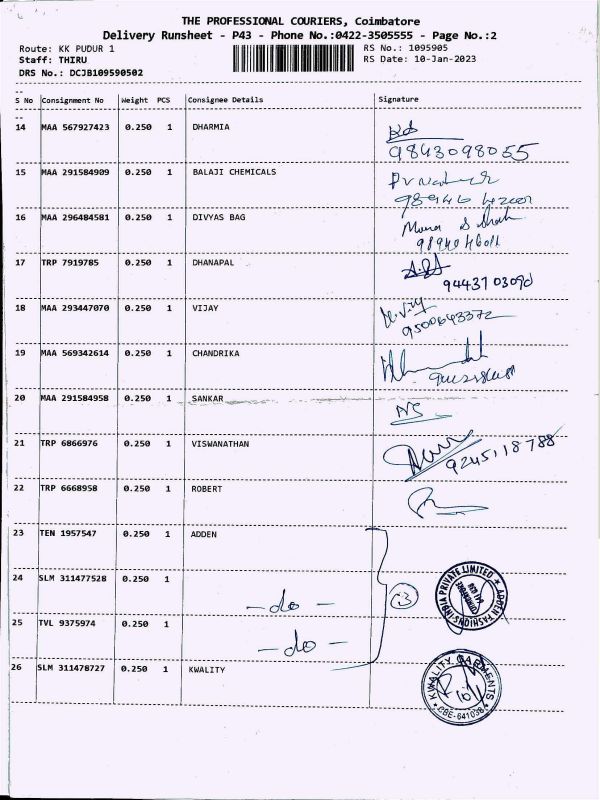 THE PROFESSIONAL COURIERS, Coimbatore
Delivery Runsheet - P43 - Phone No.:0422-3505555 - Page No.:2
Route: KK PUDUR 1 RS No.: 1095905
Staff: THIRU RS Date: 10-Jan-2023
DRS No.: DCJB109590502
S No Consignment No Weight PCS Consignee Details Signature
14 MAA 567927423 0.250 1 DHARMIA
9843098055
15 MAA 291584909 0.250 1 BALAJI CHEMICALS
16 MAA 296484581 0.250 1 DIVYAS BAG
17 TRP 7919785 0.250 1 DHANAPAL
18 MAA 293447070 0.250 1 VIJAY
9500643372
19 MAA 569342614 0.250 1 CHANDRIKA
20 MAA 291584958 0.250 1 SANKAR
21 TRP 6866976 0.250 1 VISWANATHAN
9245118788
22 TRP 6668958 0.250 1 ROBERT
23 TEN 1957547 0.250 1 ADDEN
24 SLM 311477528 0.250 1
-do- 3
ADDEN FASHIONS INDIA PRIVATE LIMITED
25 TVL 9375974 0.250 1
-do-
26 SLM 311478727 0.250 1 KWALITY
KWALITY GARMENTS
CBE-641038